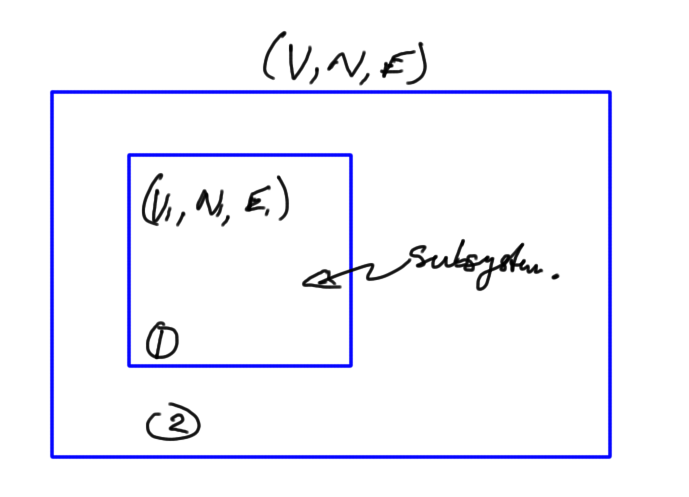 (V, N, E)
(V₁, N₁, E₁)
subsystem.
①
②